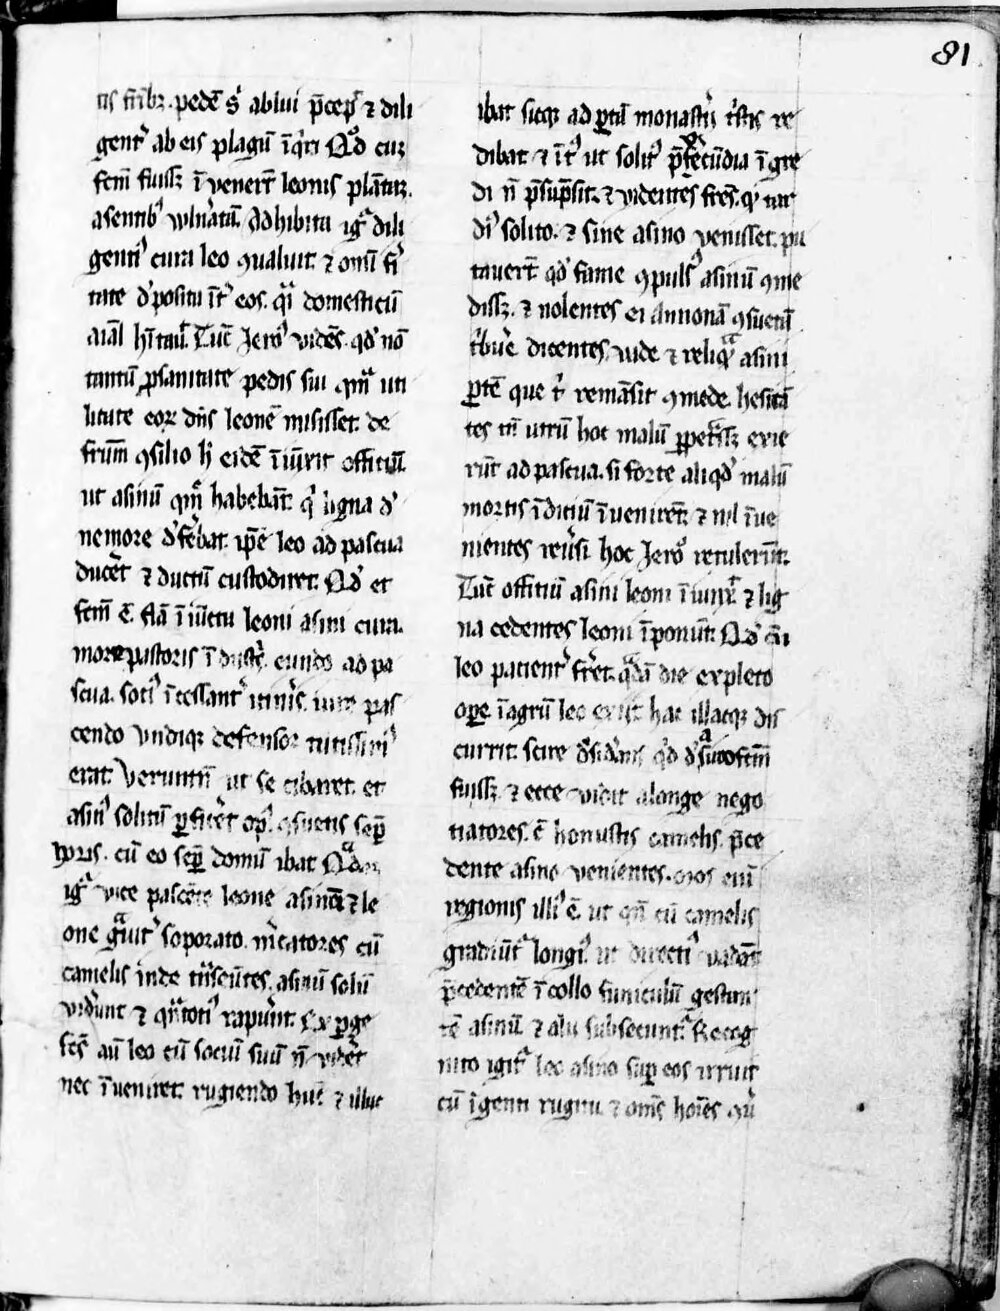 81
tis fr̄ibꝫ. pedē s̉ ablui p̄cep̉ ⁊ dili
gent̉ ab eis plagā īq̉ri Qd̊ cuꝫ
fc̄m fuissꝫ ī venerūt leonis plātaꝫ.
a sentibꝰ vulneratā. Adhibita igͥ dili
genti cura leo ꝯualuit. ⁊ om̄i fi̓
tate dep̉osita īt̉ eos. qͣi domesticū
aīal hītauͥ. Tūc Jeroꝰ vidēs. qd̓ nō
tantū ꝓ sanitate pedis sui qͣm uti
litate eoꝝ dn̄s leonē misisset. de
fr̄um ꝯsilio h̓ eidē īiūxit offitiū.
ut asinū qm̄ habebāt. q̓ ligna d̓
nemore d̓ferebat. ip̄e leo ad pascua
ducēt ⁊ ductū custodiret. Qd̓ et
fc̄m ē. Nā īiūcta leoni asini cura.
more pastoris īdust̓. eundo ad pa
scua. sociꝰ īcessant̓ itin̓is. iure pas
cendo vndiqꝫ defensor tutissimꝰ
erat. Verumt̄n ut se cibaret. et
asinꝰ solitū ꝑficeret opꝰ. ꝯsuetis semꝑ
horis. cū eo semꝑ domū ibat Qͣdaꝫ
igͥ vice pascēte leone asinū ⁊ le
one gͣuit̓ soporato. m̓catores cū
camelis inde trāseūtes. asinū solū
vid̓unt ⁊ qn̄totiꝰ rapuūt. Exꝑge
fc̄s aū leo cū sociū suū n̄ vid̓et
nec īueniret. rugiendo huc ⁊ illuc
ibat sicqꝫ ad portā monast̓ij t̓stis re
dibat ⁊ īt̓ ut solitꝰ p̄ verecūdia īgre
di n̄ p̄sūpsit. ⁊ videntes fr̄es. qͥ tar
diꝰ solito. ⁊ sine asino venisset. pu
tauerūt qd̓ fame ꝯpulsꝰ asinū ꝯme
dissꝫ. ⁊ nolentes ei annonā ꝯsuetā
t̓buere dicentes vade ⁊ reliqͣ asini
ꝑtē que t̓ remāsit ꝯmede. hesitā
tes tn̄ utrū hoc malū ꝑpetrassꝫ exie
rūt ad pascua. si forte aliqd̓ malū
mortis īditiū īuenirēt. ⁊ nil īue
nientes reu̓si hoc Jeroꝰ retulerūt.
Tūc offitiū asini leoni īiūxer̄ ⁊ lig
na cedentes leoni īponūt. Qd̓ cū
leo patient̓ ferret. qͣdā die expleto
ope īagrū leo exijt hac illacqꝫ dis
currit. scire d̓sid̓ans qd̓ d̓ asino fc̄m
fuissꝫ. ⁊ ecce vidit alonge nego
tiatores. cū honustis camelis. p̄ce
dente asino venientes. mos enī
regionis illiꝰ ē. ut qn̄ cū camelis
gradiūt̓ longiꝰ. ut directiꝰ vadāt
p̄cedentē īcollo funiculū gestan
tē asinū. ⁊ alij subsecunt̓. Recog
nito igit̓ leo asino suꝑ eos irruit
cū īgenti rugitu. ⁊ om̄s hoīes ꝯu̓